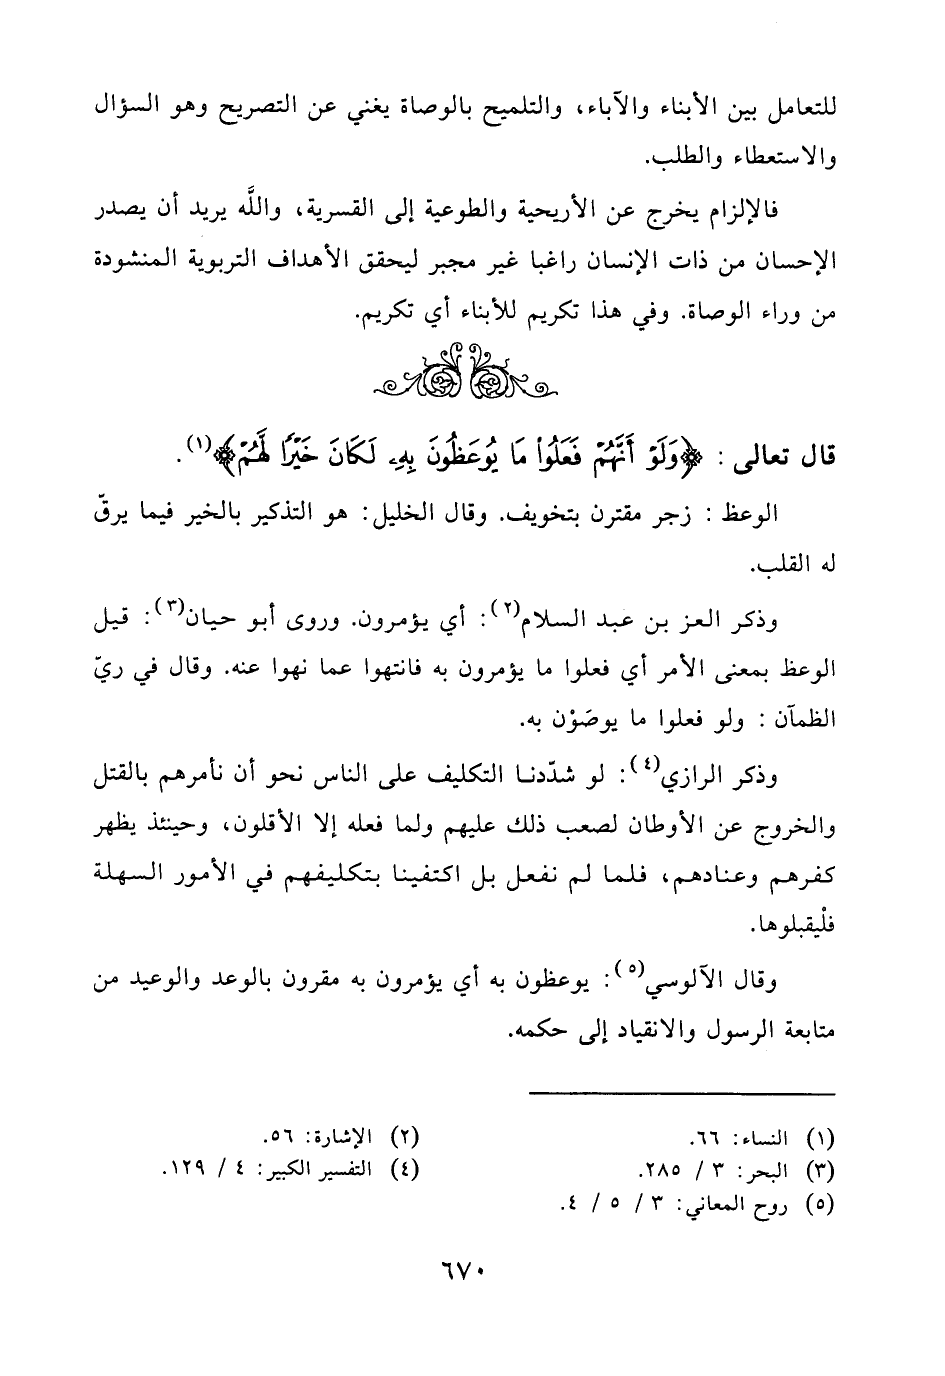 للتعامل بين الأبناء والآباء، والتلميح بالوصاة يغني عن التصريح وهو السؤال
والاستعطاء والطلب.
فالإلزام يخرج عن الأريحية والطوعية إلى القسرية، واللَّه يريد أن يصدر
الإحسان من ذات الإنسان راغبا غير مجبر ليحقق الأهداف التربوية المنشودة
من وراء الوصاة. وفي هذا تكريم للأبناء أي تكريم.
قال تعالى : ﴿وَلَوْ أَنَّهُمْ فَعَلُوا۟ مَا يُوعَظُونَ بِهِۦ لَكَانَ خَيْرًا لَّهُمْ﴾(١).
الوعظ : زجر مقترن بتخويف. وقال الخليل: هو التذكير بالخير فيما يرقّ
له القلب.
وذكر العز بن عبد السلام(٢): أي يؤمرون. وروى أبو حيان(٣): قيل
الوعظ بمعنى الأمر أي فعلوا ما يؤمرون به فانتهوا عما نهوا عنه. وقال في ريّ
الظمآن : ولو فعلوا ما يوصَوْن به.
وذكر الرازي(٤): لو شدّدنا التكليف على الناس نحو أن نأمرهم بالقتل
والخروج عن الأوطان لصعب ذلك عليهم ولما فعله إلا الأقلون، وحينئذ يظهر
كفرهم وعنادهم، فلما لم نفعل بل اكتفينا بتكليفهم في الأمور السهلة
فلْيقبلوها.
وقال الآلوسي(٥): يوعظون به أي يؤمرون به مقرون بالوعد والوعيد من
متابعة الرسول والانقياد إلى حكمه.
(١) النساء: ٦٦. (٢) الإشارة: ٥٦.
(٣) البحر: ٣ / ٢٨٥. (٤) التفسير الكبير: ٤ / ١٢٩.
(٥) روح المعاني: ٣ / ٥ / ٤.
٦٧٠